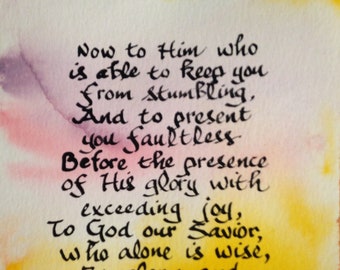 Now to Him who
is able to keep you
from stumbling,
And to present
you faultless
Before the presence
of His glory with
exceeding joy,
To God our Savior,
who alone is wise,